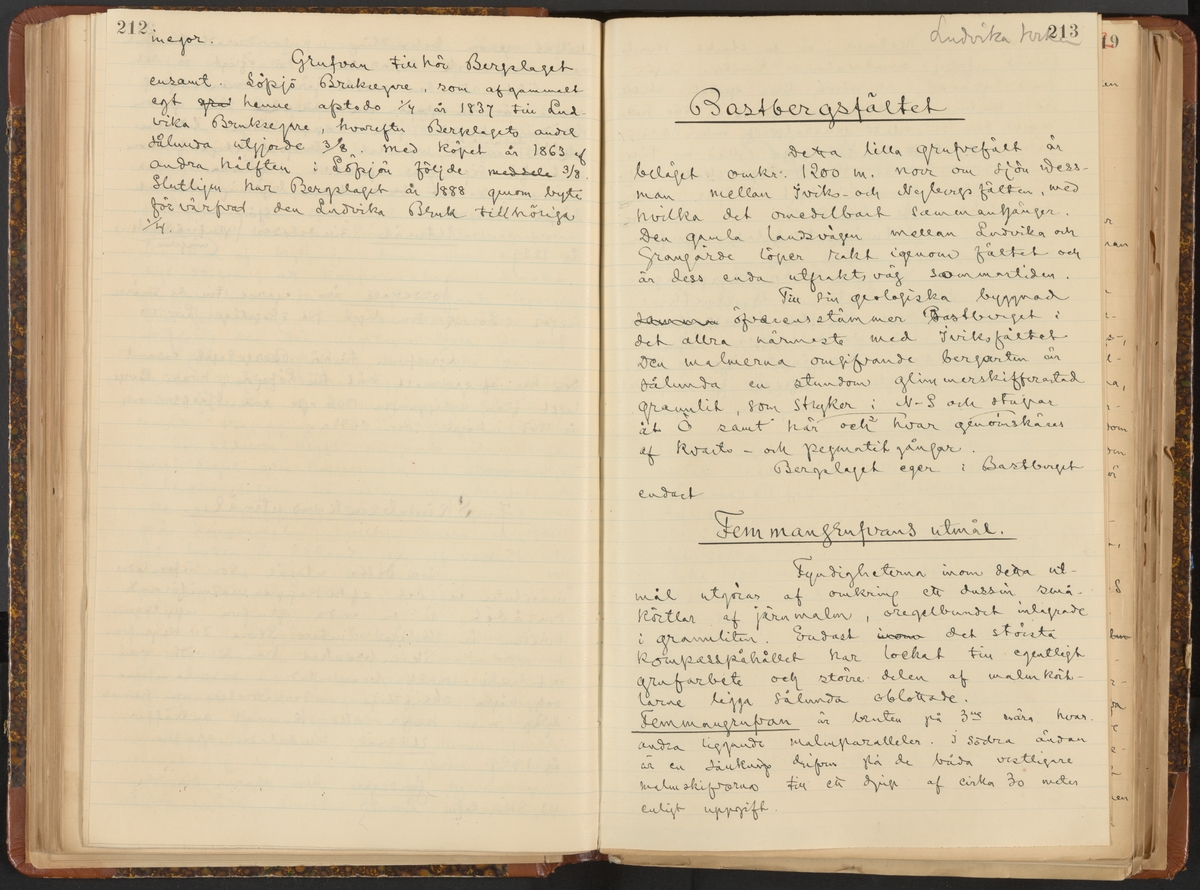 212
inegor.
Grufvan tillhör Bergslaget
ensamt. Löpsjö Bruksegare, som af gammalt
egt henne afstodo 1/4 år 1837 till Lud-
vika Bruksegare, hvarefter Bergslagets andel
sålunda utgjorde 3/8. Med köpet år 1863 af
andra hälften i Löpsjön följde 3/8.
Slutligen har Bergslaget år 1888 genom byte
förvärfvat den Ludvika Bruk tillhöriga
1/4.
213
Ludvika socken
Bastbergsfältet
Detta lilla grufvefält är
beläget omkr. 1200 m. norr om sjön Wess-
man mellan Iviks- och Nybergsfälten, med
hvilka det omedelbart sammanhänger.
Den gamla landsvägen mellan Ludvika och
Grangärde löper rakt igenom fältet och
är dess enda utfraktsväg sommartiden.
Till sin geologiska byggnad
samma öfverensstämmer Bastberget i
det allra närmaste med Iviksfältet
Den malmerna omgifvande bergarten är
sålunda en stundom glimmerskifferartad
granulit, som stryker i N-S och stupar
åt Ö samt här och hvar genomskäres
af kvarts- och pegmatitgångar.
Bergslaget eger i Bastberget
endast
Femmangrufvans utmål.
Fyndigheterna inom detta ut-
mål utgöras af omkring ett dussin små-
körtlar af järnmalm, oregelbundet inlagrade
i granuliten. Endast inom det största
kompasspåhållet har lockat till egentligt
grufarbete och större delen af malmkört-
larne ligga sålunda oblottade.
Femmangrufvan är bruten på 3ne nära hvar-
andra liggande malmparalleler. I södra ändan
är en sänkning drifven på de båda vestligare
malmskifvorna till ett djup af cirka 30 meter
enligt uppgift.
19